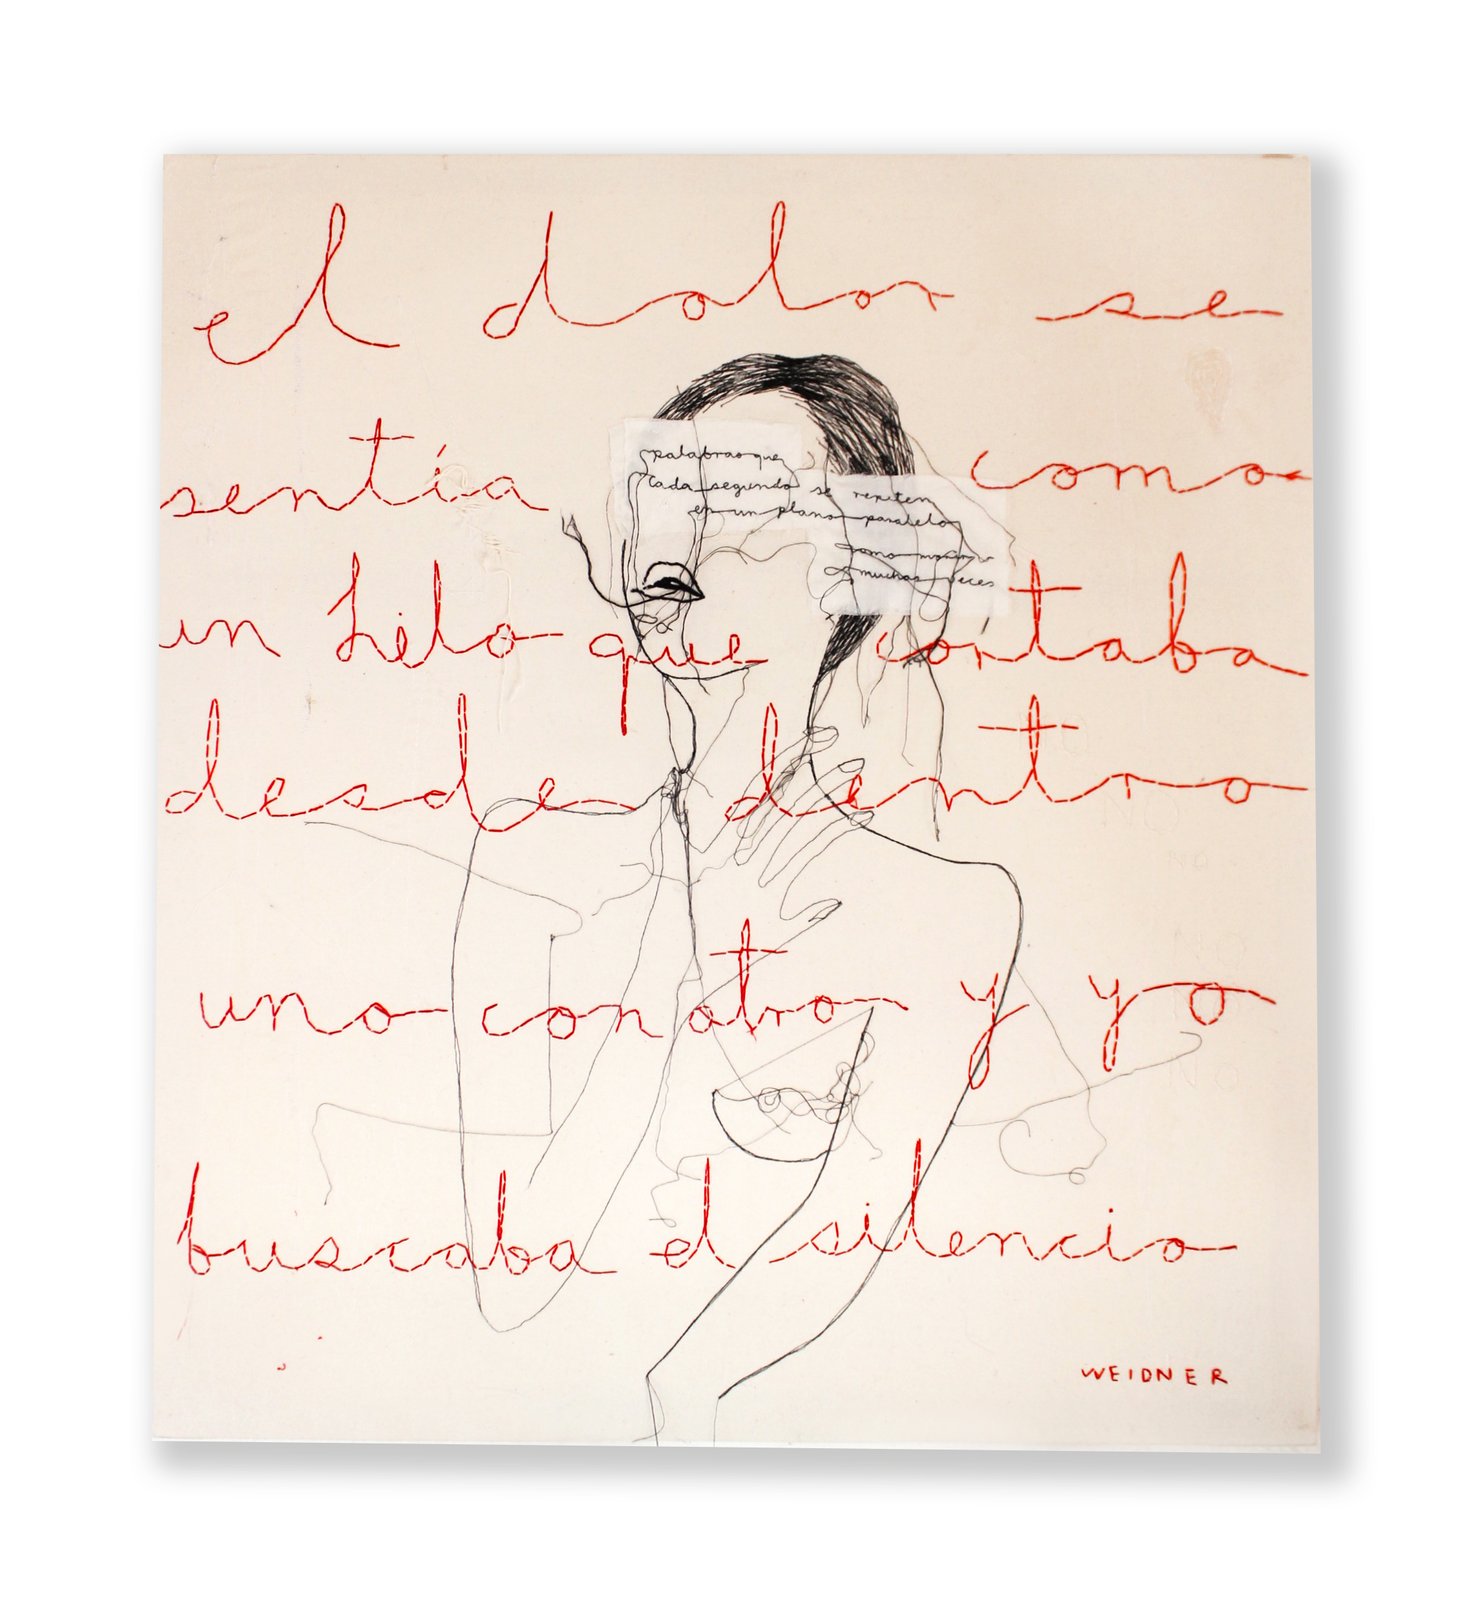 el dolor se
palabras que
cada segundo se repiten
en un plano paralelo
como morir
muchas veces
sentía como
un hilo que cortaba
desde dentro
uno con otro y yo
buscaba el silencio
WEIDNER